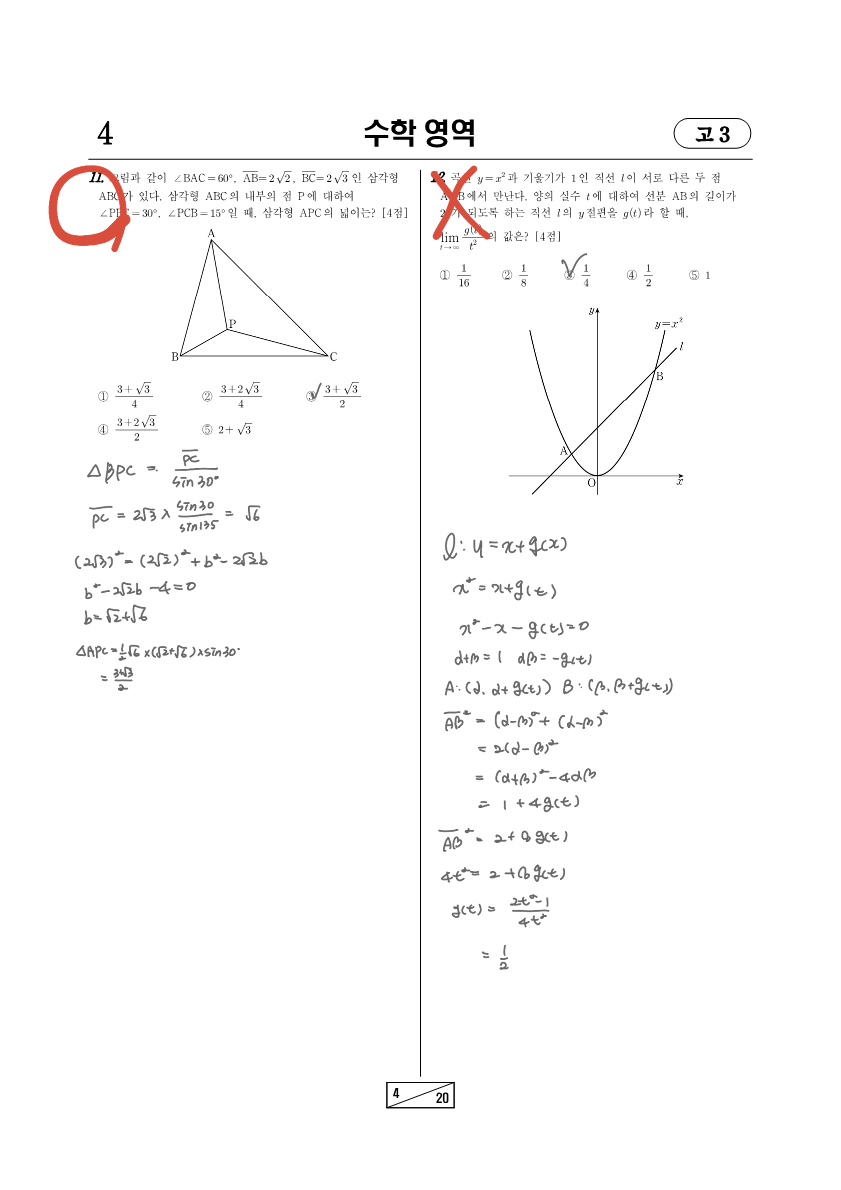 4
수학 영역
고 3
11. 그림과 같이 ∠BAC=60°, AB=2√2, BC=2√3 인 삼각형
ABC가 있다. 삼각형 ABC의 내부의 점 P에 대하여
∠PBC=30°, ∠PCB=15°일 때, 삼각형 APC의 넓이는? [4점]
A
P
B
C
① (3+√3)/4
② (3+2√3)/4
③ (3+√3)/2
④ (3+2√3)/2
⑤ 2+√3
△BPC = PC/sin30°
PC = 2√3 × sin30/sin135 = √6
(2√3)² = (2√2)² + b² - 2√2b
b² - 2√2b - 4 = 0
b = √2+√6
△APC = 1/2 √6 × (√2+√6) × sin30°
= (3+√3)/2
12. 곡선 y=x²과 기울기가 1인 직선 l이 서로 다른 두 점
A, B에서 만난다. 양의 실수 t에 대하여 선분 AB의 길이가
2t가 되도록 하는 직선 l의 y절편을 g(t)라 할 때,
lim t→∞ g(t)/t² 의 값은? [4점]
① 1/16
② 1/8
③ 1/4
④ 1/2
⑤ 1
y
y=x²
l
B
A
O
x
l : y = x+g(x)
x² = x+g(t)
x² - x - g(t) = 0
α+β = 1 αβ = -g(t)
A : (α, α+g(t)) B : (β, β+g(t))
AB² = (α-β)² + (α-β)²
= 2(α-β)²
= (α+β)² - 4αβ
= 1 + 4g(t)
AB² = 2 + 8g(t)
4t² = 2 + 8g(t)
g(t) = (2t²-1)/4t²
= 1/2
4
20